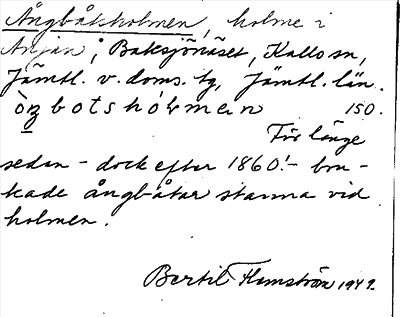 Ångbåtsholmen, holme i
Anjan, Baksjönäset, Kallo sn,
Jämtl. v. doms. tg, Jämtl. län.
òŋbotshólmen 150.
För länge
sedan – dock efter 1860! – bru-
kade ångbåtar stanna vid
holmen.
Bertil Flemström 1947.